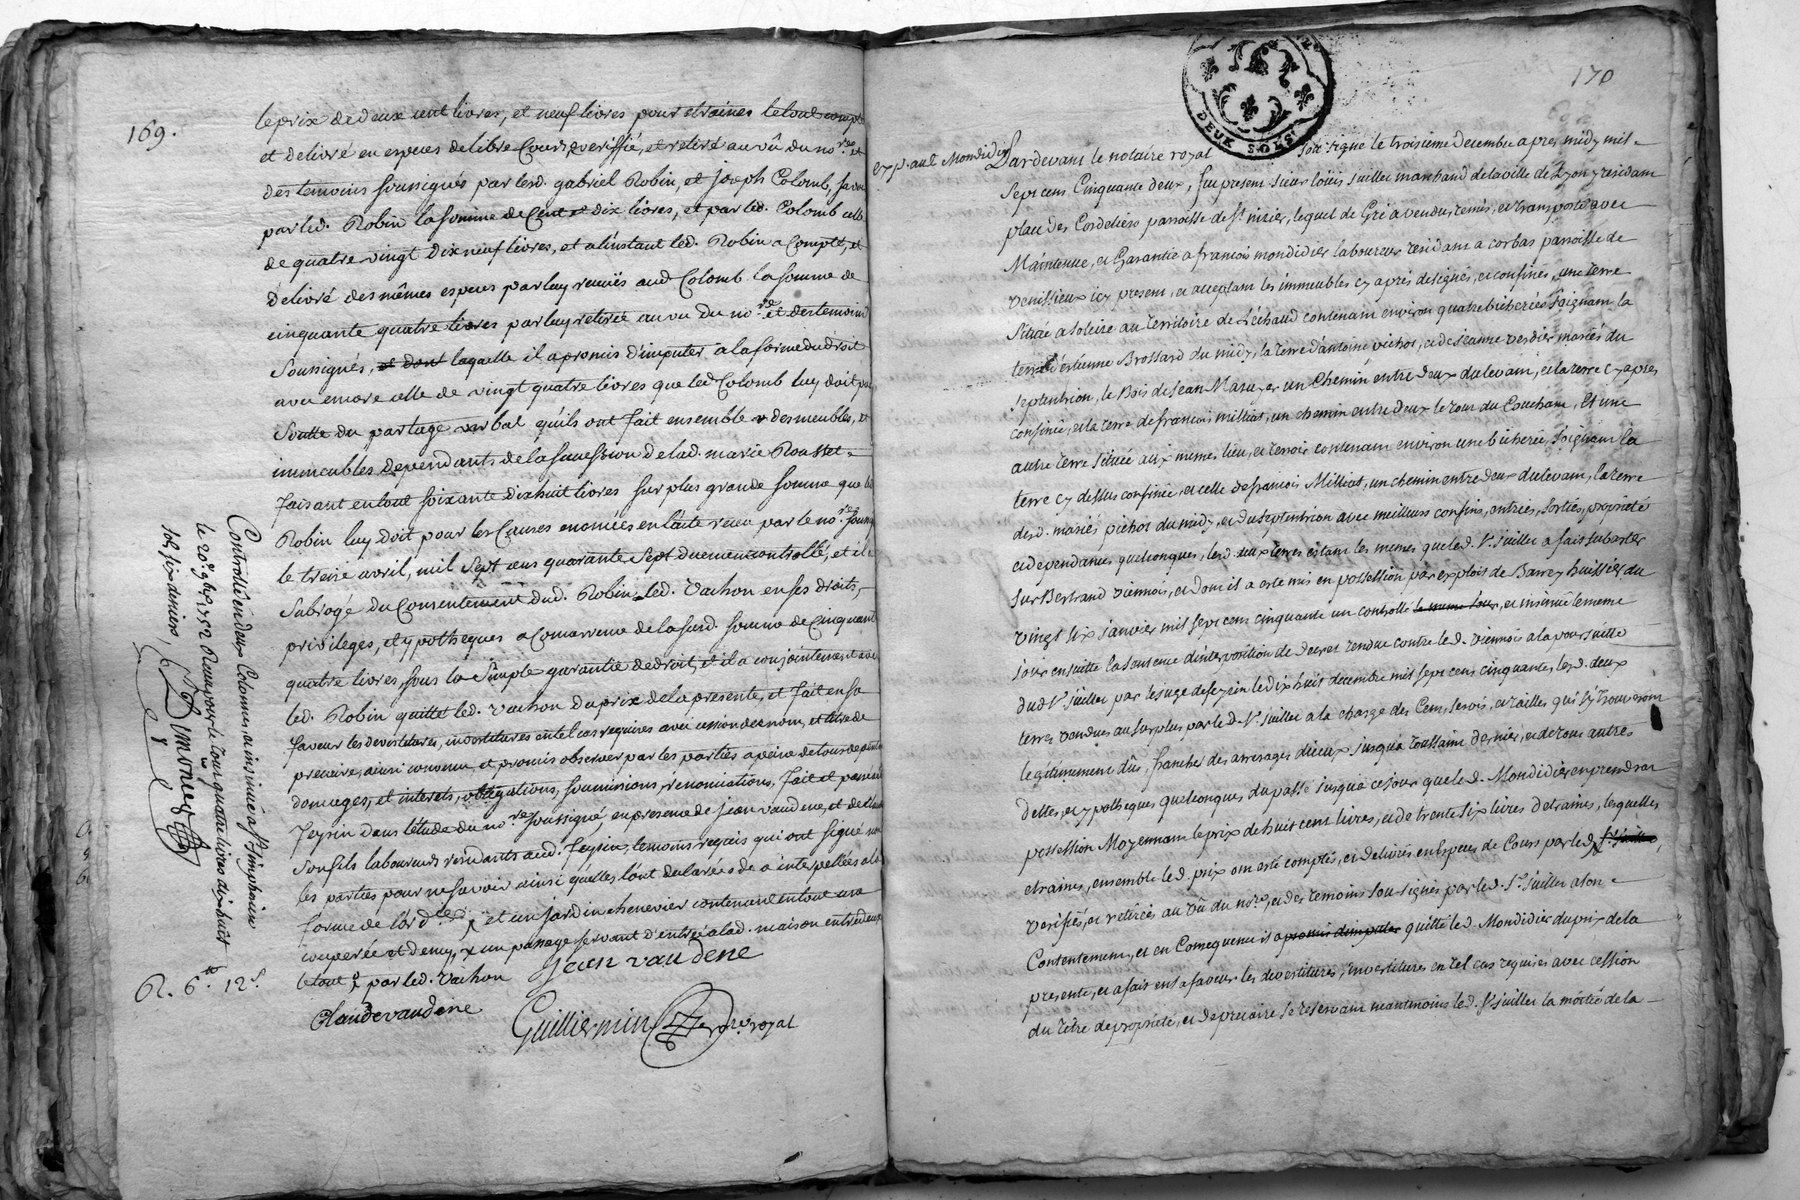 169.
le prix de deux cent livres, et neuf livres pour etraines le tout compté
et delivré en especes de libre Cours, veriffié, et retiré au vû du no.re et
des temoins soussignés par lesd. gabriel Robin, et joseph Colomb, savoir
par led. Robin la somme de Cent et dix livres, et par led. Colomb celle
de quatre vingt dix neuf livres, et a l'instant led. Robin a Compté, et
delivré des mêmes especes par luy reçuës aud. Colomb la somme de
cinquante quatre livres par luy retirée au vu du no.re et des temoins
soussignés, et dont laquelle il a promis d'imputer a la forme du droit
avec encore celle de vingt quatre livres que led. Colomb luy doit pour
Soutte du partage verbal qu'ils ont fait ensemble des meubles, et
immeubles dependants de la succession de lad. marie Rousset
faisant en tout soixante dix huit livres sur plus grande somme que led.
Robin luy doit pour les Causes enoncées en l'acte reçu par le no.re soussigné
le treize avril, mil sept cens quarante sept duement controllé, et il a
Subrogé du Consentement dud. Robin led. Vachon en ses droits,
privileges, et ypotheques a Concurrence de la susd. somme de Cinquante
quatre livres sous la simple garantie de droit, et il a conjointement avec
led. Robin quitté led. Vachon du prix de la presente, et fait en sa
faveur les devestitures, investitures en tel cas requises avec cession de nom, et titre de
precaire, ainsi convenu, et promis observer par les parties a peine de tous depens
domages, et interets, obligations, soumissions, rénonciations, fait et passé aud.
feysin dans l'étude du no.re soussigné, en presence de jean vaudene, et de Claude
son fils laboureurs residants aud. feysin, temoins requis qui ont signé non
les parties pour ne savoir ainsi qu'elles l'ont declaré de ce interpellées a la
forme de l'ord.ce et un jardin chenevier contenant en tout une
couperée et demy, x un passage servant d'entrée a lad. maison entre deux
le tout par led. Vachon
jean vaudene
Claude vaudene
Guilliermin no.re royal
Controllé en deux Colonnes, et insinué a st simphorien
le 20.e 9bre 1752 Reçu pour le tout quatre livres dix huit
sols six deniers,
Simonet
R. 6.tt 12.s
170
DEUX SOLS
Par devant le notaire royal sous signé le troisieme decembre apres midy mil
sept cens Cinquante deux, fut present sieur loüis juillet marchand de la ville de Lyon y residant
place des Cordeliers parroisse de st nizier, lequel de Gré a vendu, remis, et transporté avec
Maintenue, et Garantie a francois mondidier laboureur residant a corbas parroisse de
venissieux icy present, et acceptant les immeubles cy apres designés, et confinés, une terre
située a soleize au territoire de Léchaud contenant environ quatre bicherées joignant la
terre d'estienne Brossard du midy, la terre d'antoine pichot, et de jeanne verdier mariés du
septentrion, le Bois de Jean Mazuyer un Chemin entre deux du levant, et la terre cy apres
confinée, et la terre de francois milliat, un chemin entre deux le tout du Couchant, Et une
autre terre située aux memes lieu, et terroir contenant environ une bicherée, joignant la
terre cy dessus confinée, et celle de francois Milliat, un chemin entre deux du levant, la terre
desd. mariés pichot du midy, et du septentrion avec meilleurs confins, entrées, sorties, proprieté
et dependances quelconques, lesd. deux terres estant les memes que led. sr juillet a fait subaster
sur Bertrand viennois, et dont il a esté mis en possession par exploit de Barrey huissier du
vingt six janvier mil sept cens cinquante un controllé le meme jour, et insinué le meme
jour ensuitte la sentence d'interposition de decret rendue contre led. viennois a la poursuitte
dud. sr juillet par le juge de feyzin le dix huit decembre mil sept cens cinquante, lesd. deux
terres vendues au surplus par led. sr juillet a la charge des Cens, servis, et tailles qui s'y trouveront
legitimement dûs, franches des arrerages d'iceux jusqu'a toussaint dernier, et de tout autres
dettes, et ypotheques quelconques du passé jusqu'a ce jour que led. Mondidier en prendra
possession Moyennant le prix de huit cent livres, et de trente six livres d'etraines, lesquelles
etraines, ensemble led. prix ont esté comptés, et delivrés en Especes de Cours par led.
verifiés, et retirées au vû du no.re, et des temoins sous signés par led. sr juillet a son
Contentement, et en Consequence il a promis d'imputer quitté led. Mondidier du prix de la
presente, et a fait en sa faveur les devestitures, investitures en tel cas requises avec cession
du titre de proprieté, et de precaire se reservant neantmoins led. sr juillet la moitié de la